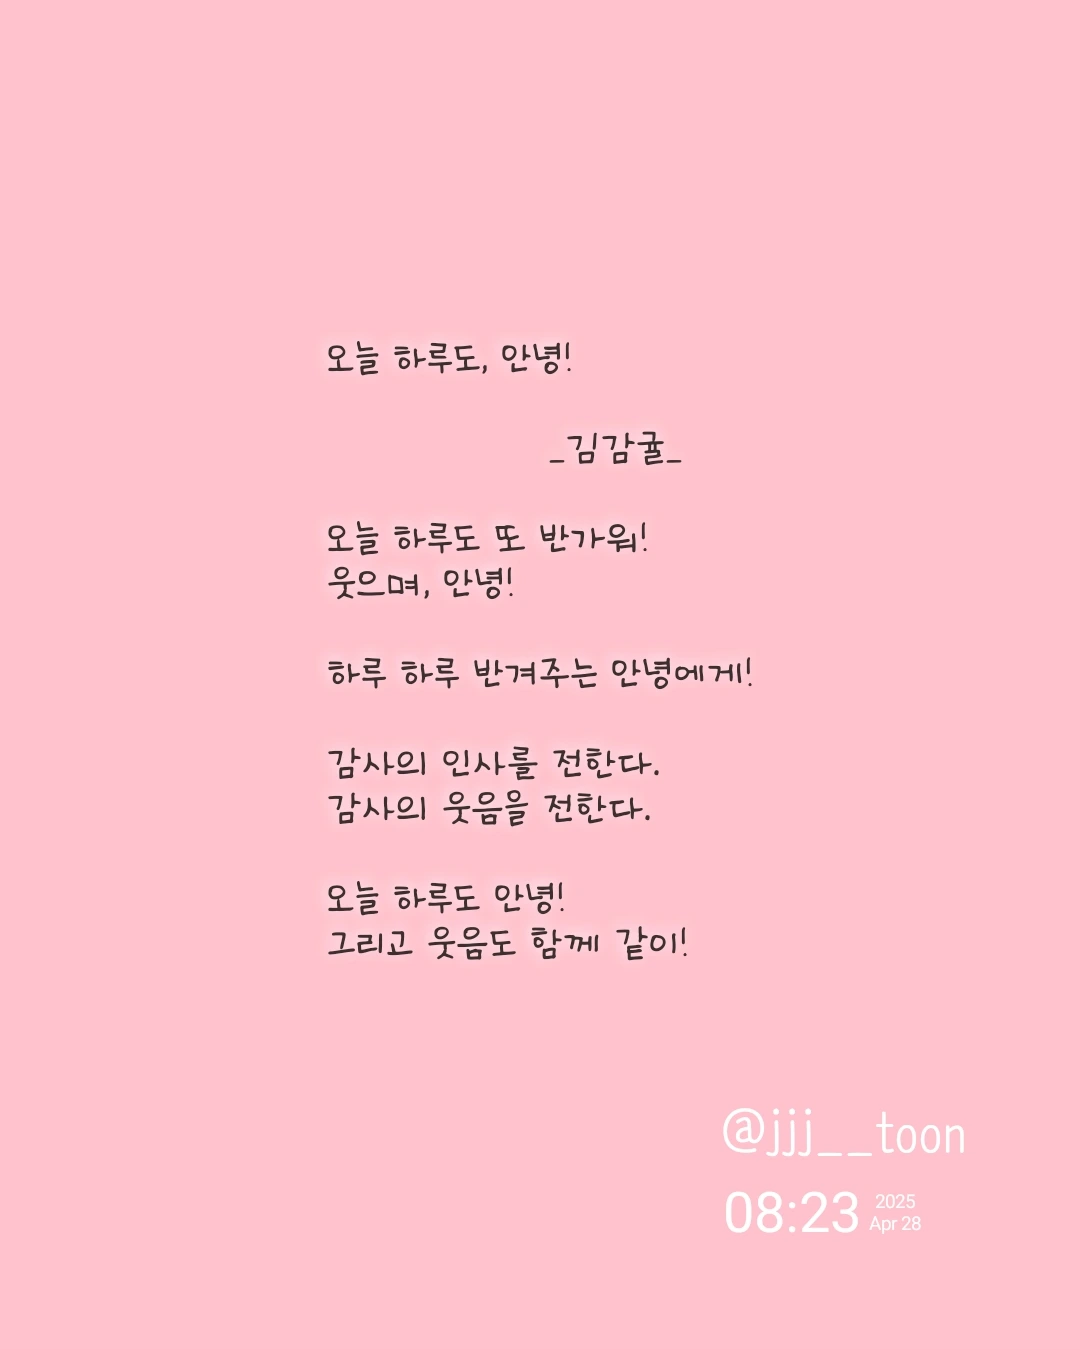 오늘 하루도, 안녕!
_김감귤_
오늘 하루도 또 반가워!
웃으며, 안녕!
하루 하루 반겨주는 안녕에게!
감사의 인사를 전한다.
감사의 웃음을 전한다.
오늘 하루도 안녕!
그리고 웃음도 함께 같이!
@jjj__toon
08:23 2025
Apr 28